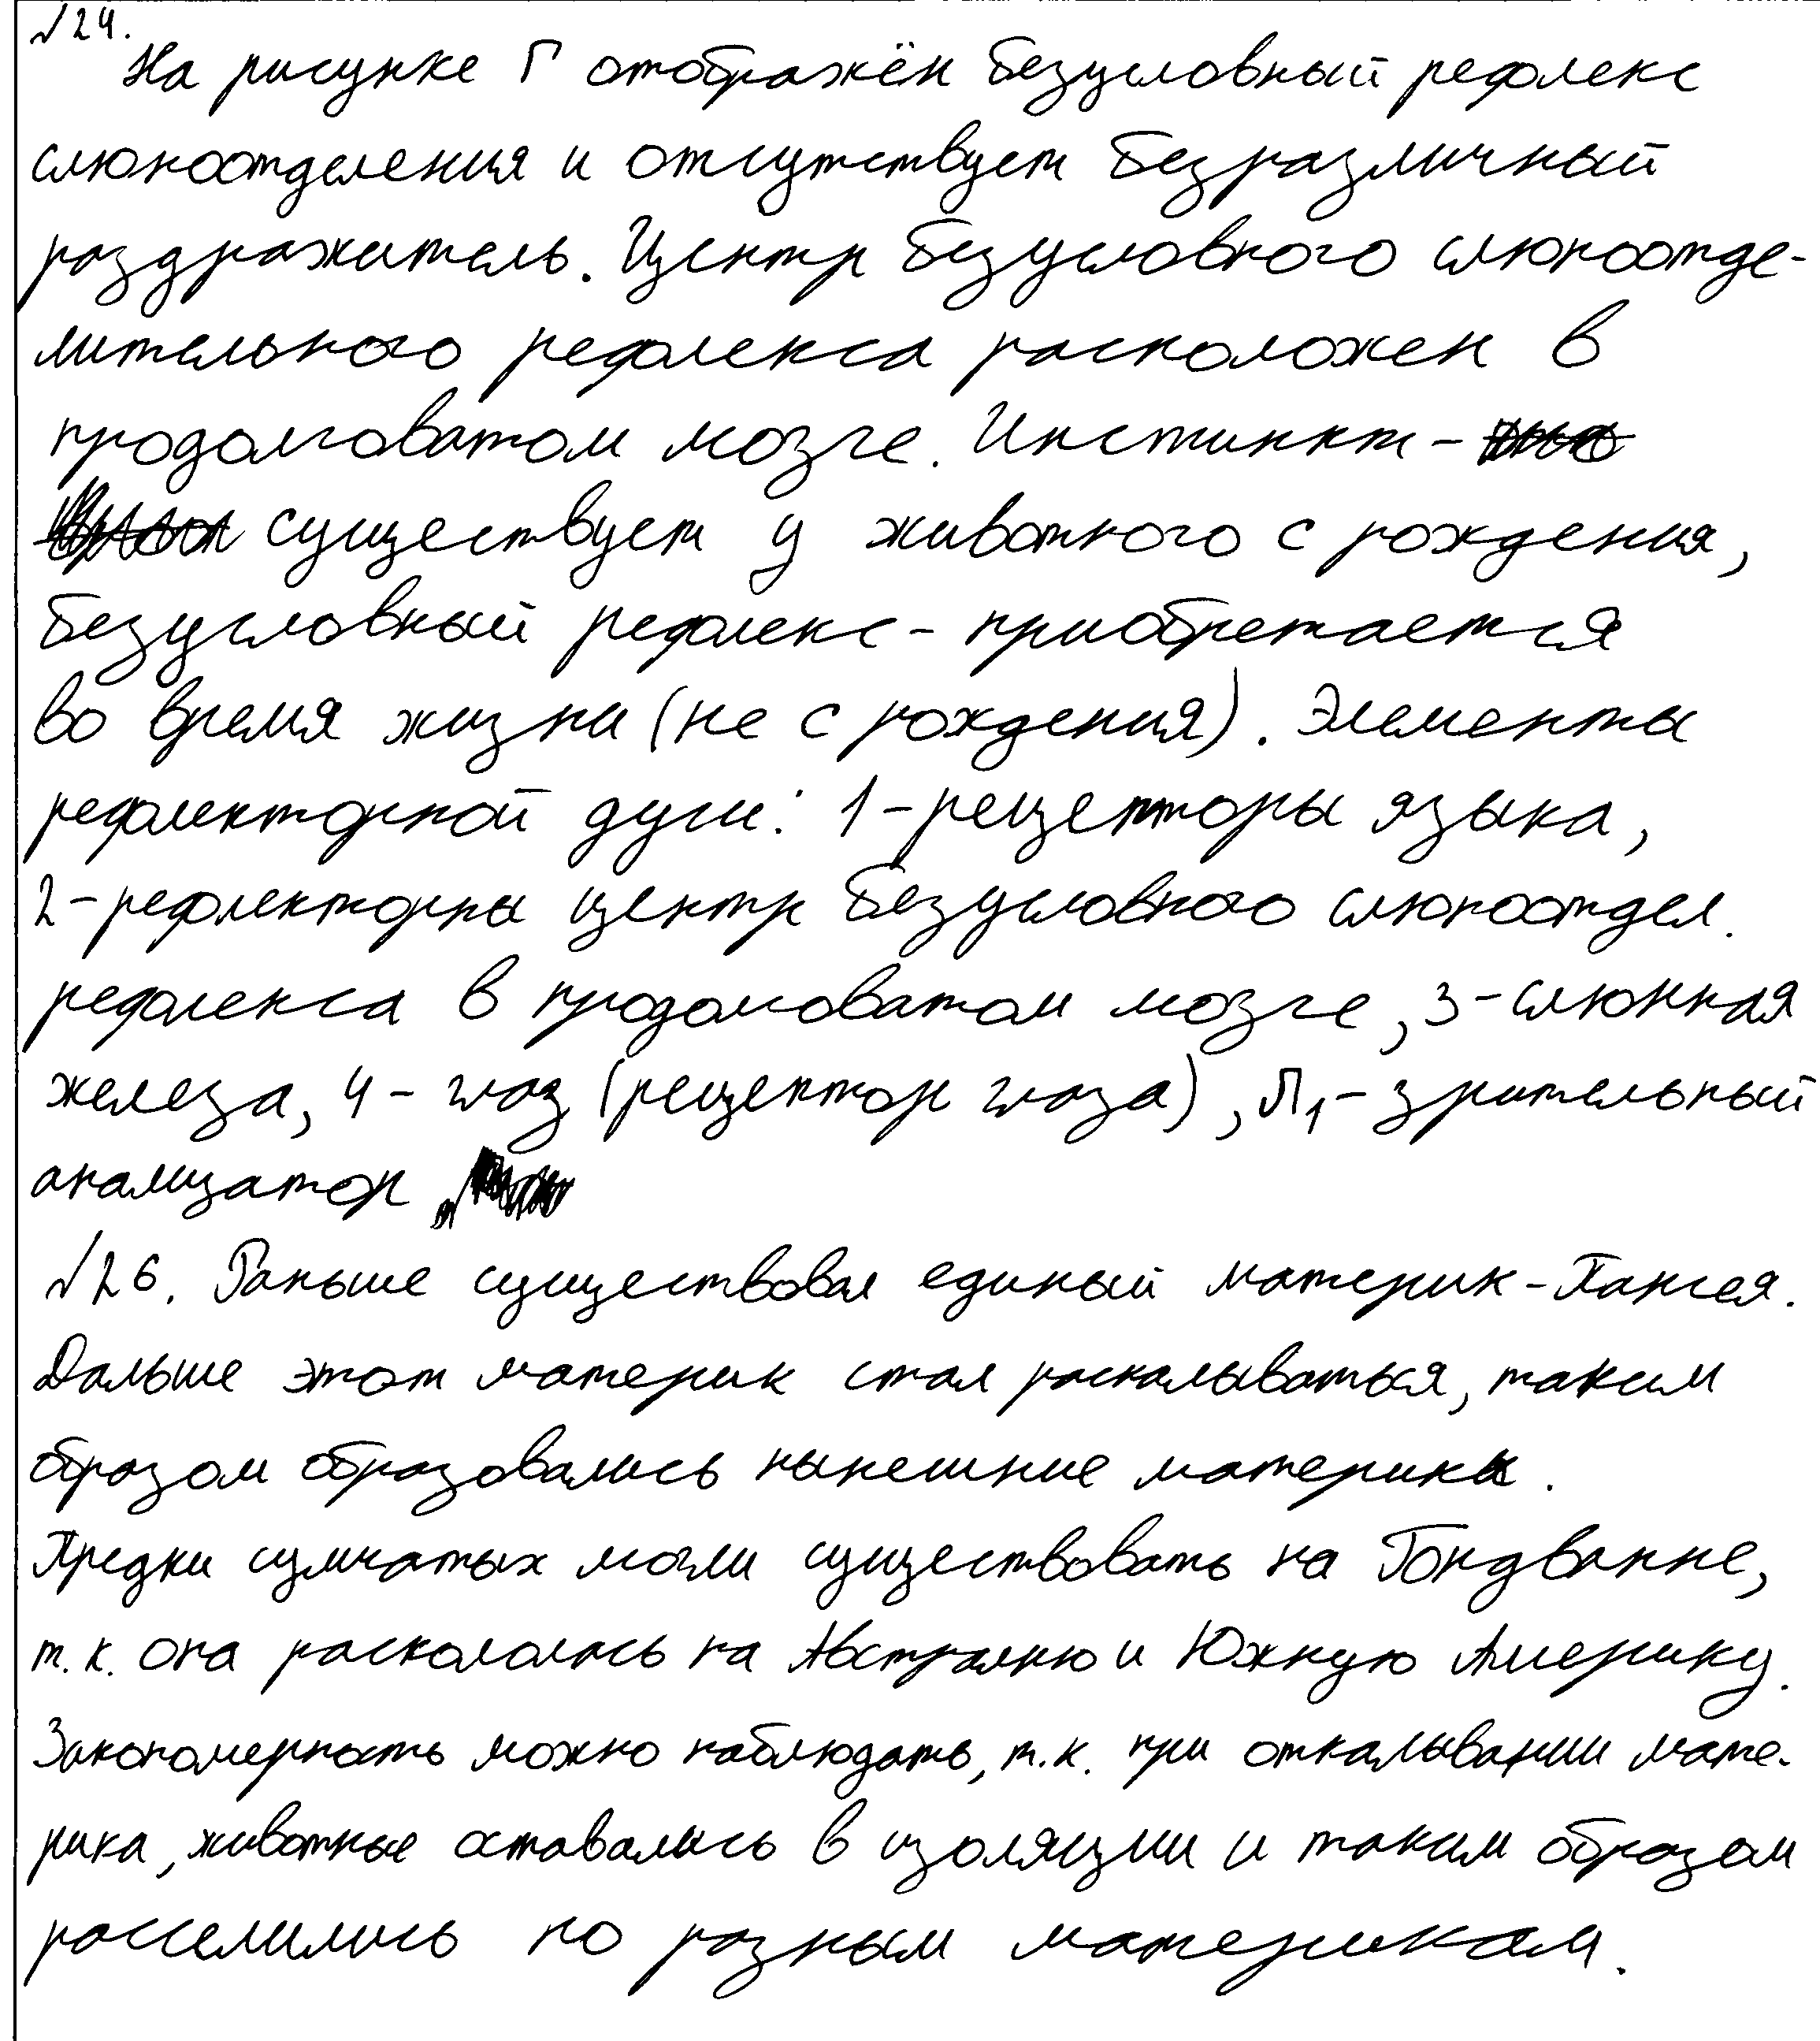 №24.
На рисунке Г отображён безусловный рефлекс
слюноотделения и отсутствует безразличный
раздражитель. Центр безусловного слюноотде-
лительного рефлекса расположен в
продолговатом мозге. Инстинкт -
существует у животного с рождения,
безусловный рефлекс - приобретается
во время жизни (не с рождения). Элементы
рефлекторной дуги: 1 - рецепторы языка,
2 - рефлекторны центр безусловного слюноотдел.
рефлекса в продолговатом мозге, 3 - слюнная
железа, 4 - глаз (рецептор глаза), П1 - зрительный
анализатор
№26. Раньше существовал единый материк - Пангея.
Дальше этот материк стал раскалываться, таким
образом образовались нынешние материки.
Предки сумчатых могли существовать на Гондванне,
т.к. она раскололась на Австралию и Южную Америку.
Закономерность можно наблюдать, т.к. при откалывании мате-
рика, животные оставались в изоляции и таким образом
расселились по разным материкам.